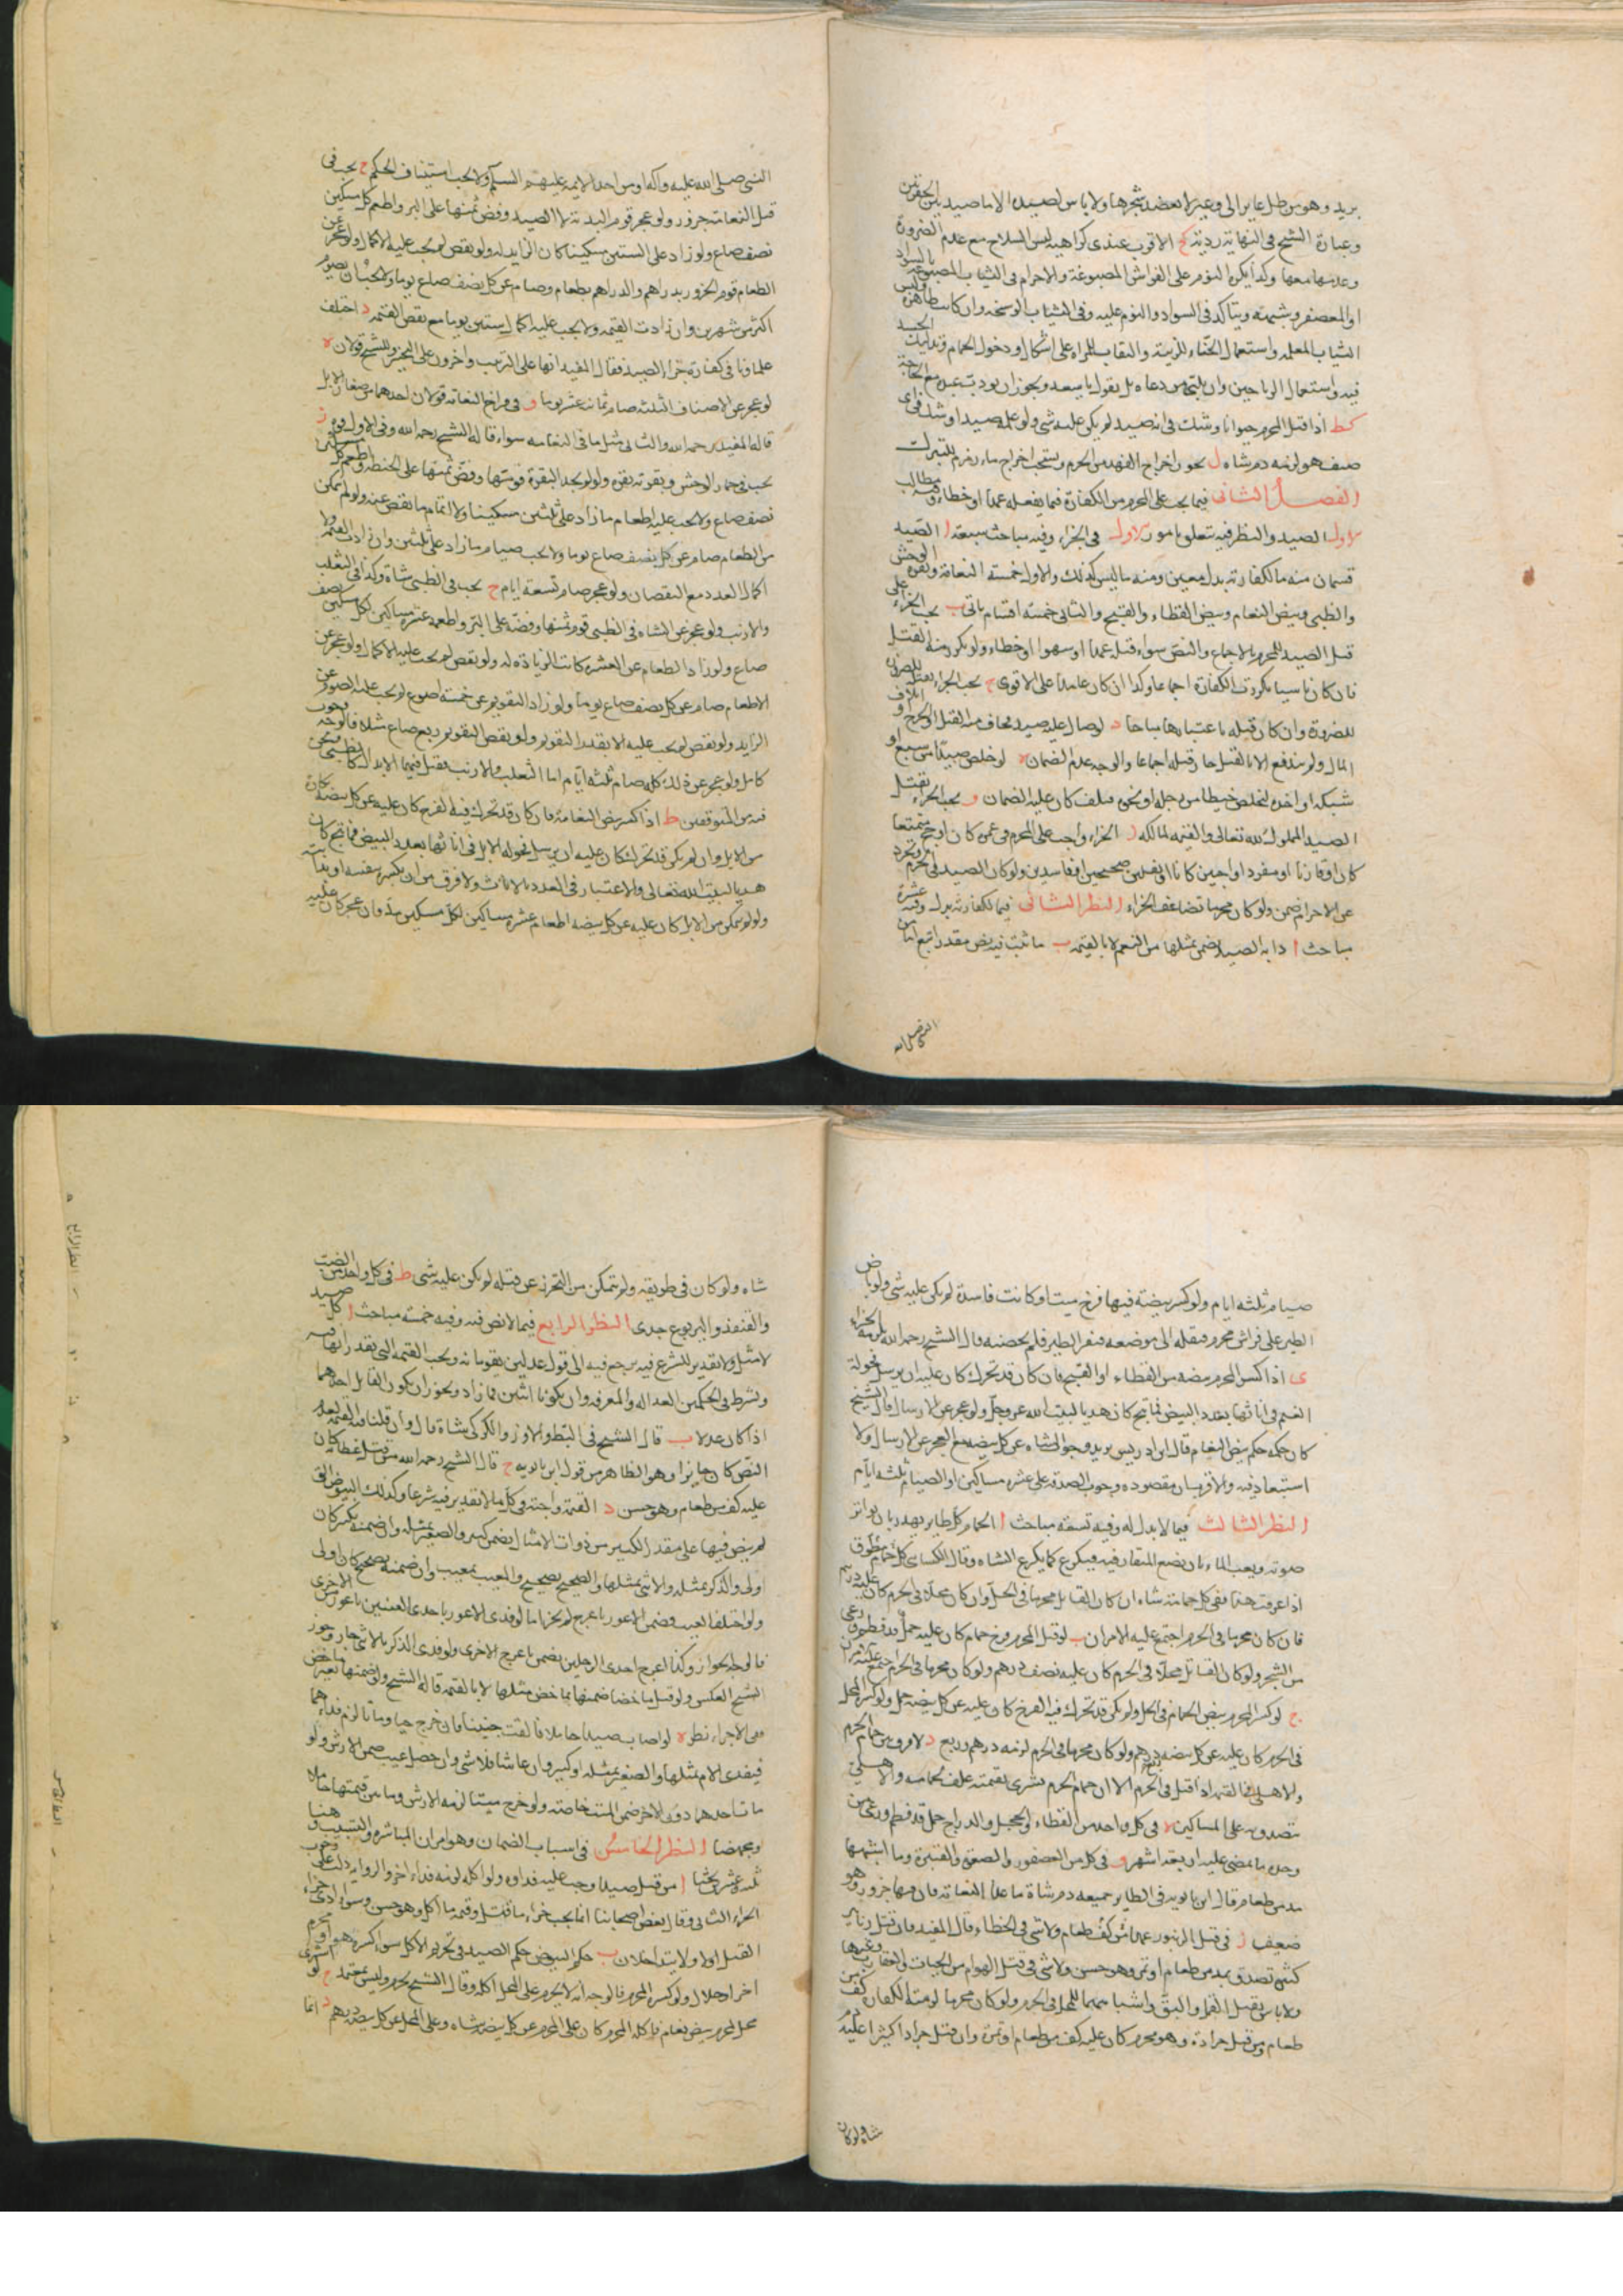 بريد وهو من ظل عاير الى وعير لا يعضد شجرها ولا باس لصيده الا ما صيد بين الحرتين
وعبارة الشيخ فى النهاية ردية كح الاقرب عندى كراهية لبس السلاح مع عدم الضرورة
وعدمها معها وكذا يكره النوم على الفراش المصبوغة والاحرام فى الثياب المصبوغة بالسواد
او المعصفر وشبهه ويتاكد فى السواد والنوم عليه وفى الثياب الوسخة وان كانت طاهرة ولبس
الثياب المعلمة واستعمال الحناء للزينة والنقاب للمراة على اشكال ودخول الحمام وتدليك الجسد
فيه واستعمال الرياحين وان يلبى من دعاه بل يقول يا سعد ويجوز ان يودب عبده مع الحاجة
كط اذا قتل المحرم حيوانا وشك فى انه صيد لم يكن عليه شى ولو علمه صيدا وشك فى اى
صنف هو لزمه دم شاه ل يجوز اخراج الفهد من الحرم ويستحب اخراج ماء زمزم للتبرك
الفصل الثانى فيما يجب على المحرم من الكفارة فيما يفعله عمدا او خطاء وفيه مطالب
الاول الصيد والنظر فيه يتعلق بامور الاول فى الجزاء وفيه مباحث سبعة ا الصيد
قسمان منه ما لكفارته بدل معين ومنه ما ليس كذلك والاول خمسة النعامة وبقرة الوحش
والظبى وبيض النعام وبيض القطاء والقبج والثانى خمسة اقسام ياتى ب يجب الجزاء على
قتل الصيد للمحرم بالاجماع والنص سواء قتله عمدا او سهوا او خطاء ولو تكرر منه القتل
فان كان ناسيا تكررت الكفارة اجماعا وكذا ان كان عامدا على الاقوى ج يجب الجزاء بقتل الصيد
للضرورة وان كان قتله باعتبارها مباحا د لو صال عليه صيد يخاف منه القتل او الجرح او اتلاف
المال ولم يندفع الا بالقتل جاز قتله اجماعا والوجه عدم الضمان ه لو خلص صيدا من سبع او
شبكة او اخذه ليخلص خيطا من رجله او نحوه فتلف كان عليه الضمان و يجب الجزاء بقتل
الصيد المملوك لله تعالى والقيمة لمالكه ز الجزاء واجب على المحرم فى عمرة كان او حج متمتعا
كان او قارنا او مفردا واجبين كانا او نفلين صحيحين او فاسدين ولو كان الصيد فى الحرم وتجرد
عن الاحرام ضمن ولو كان محرما تضاعف الجزاء النظر الثانى فيما لكفارته بدل وفيه عشرة
مباحث ا دابة الصيد يضمن بمثلها من النعم لا بالقيمة ب ما ثبت فيه نص مقدر اتبع اما من
النبى صلى الله عليه وآله او من احد الايمة عليهم السلم ولا يجب استيناف الحكم ج يجب فى
قتل النعامة جزور ولو عجز قوم البدنة لا الصيد وفض ثمنها على البر واطعم كل مسكين
نصف صاع ولو زاد على الستين مسكينا كان الزايد له ولو نقص لم يجب عليه الاكمال ولو عجز عن
الطعام قوم الجزور بدراهم والدراهم بطعام وصام عن كل نصف صاع يوما ولا يجب ان يصوم
اكثر من شهرين وان زادت القيمة ولا يجب عليه اكمال ستين يوما مع نقص القيمة د اختلف
علماونا فى كفارة جزاء الصيد فقال المفيد انها على الترتيب واخرون على التخيير وللشيخ قولان ه
لو عجز عن الاصناف الثلثة صام ثمانية عشر يوما و فى فراخ النعامة قولان احدهما من صغار الابل
قاله المفيد رحمه الله والثانى مثل ما فى النعامة سواء قاله الشيخ رحمه الله وفى الاول قوة ز
يجب فى حمار الوحش وبقرته بقرة ولو لم يجد البقرة قومها وفض ثمنها على الحنطة واطعم كل مسكين
نصف صاع ولا يجب عليه اطعام ما زاد على ثلثين مسكينا ولا اتمام ما نقص عنه ولو لم يتمكن
من الطعام صام عن كل نصف صاع يوما ولا يجب صيام ما زاد على ثلثين وان زادت القيمة ولا
اكمال العدد مع النقصان ولو عجز صام تسعة ايام ح يجب فى الظبى شاة وكذا فى الثعلب
والارنب ولو عجز عن الشاة فى الظبى قوم ثمنها وفضه على البر واطعم عشرة مساكين لكل مسكين نصف
صاع ولو زاد الطعام عن العشرة كانت الزيادة له ولو نقص لم يجب عليه الاكمال ولو عجز عن
الاطعام صام عن كل نصف صاع يوما ولو زاد التقويم عن خمسة اصوع لم يجب عليه الصوم عن
الزايد ولو نقص لم يجب عليه الا بقدر التقويم ولو نقص التقويم ربع صاع مثلا فالوجه وجوب
كامل ولو عجز عن ذلك كله صام ثلثة ايام اما الثعلب والارنب ففيهما الابدال كالظبى ونحن
فيه من المتوقفين ط اذا كسر بيض النعامة فان كان قد تحرك فيه الفرخ كان عليه عن كل بيضة بكارة
من الابل وان لم يكن قد تحرك كان عليه ان يرسل فحولة الابل فى اناثها بعدد البيض فما نتج كان
هديا لبيت الله تعالى والاعتبار فى العدد بالاناث ولا فرق بين ان يكسره بنفسه او بدابته
ولو لم يتمكن من الابل كان عليه عن كل بيضة اطعام عشرة مساكين لكل مسكين مد وان عجز كان عليه
صيام ثلثة ايام ولو كسر بيضة فيها فرخ ميت او كانت فاسدة لم يكن عليه شى ولو باض
الطير على فراش محرم فنقله الى موضعه فنفر الطير فلم يحضنه قال الشيخ رحمه الله يلزمه الجزاء
ى اذا كسر المحرم بيضة من القطاء او القبج فان كان قد تحرك كان عليه ان يرسل فحولة
الغنم فى اناثها بعدد البيض فما نتج كان هديا لبيت الله عز وجل ولو عجز عن الارسال قال الشيخ
كان حكمه حكم بيض النعام قال ابن ادريس يريد وجوب الشاه عن كل بيضة مع العجز عن الارسال ولا
استبعاد فيه والاقرب ان مقصوده وجوب الصدقة على عشرة مساكين او الصيام ثلثة ايام
النظر الثالث فيما لا بدل له وفيه تسعة مباحث ا الحمام كل طاير يهدر بان يواتر
صوته ويعب الماء بان يضع المنقار فيه فيكرع كما يكرع الشاه وقال الكسائى كل حمام مطوق
اذا عرفت هذا ففى كل حمامة شاه ان كان القاتل محرما فى الحل وان كان محلا فى الحرم كان عليه درهم
فان كان محرما فى الحرم اجتمع عليه الامران ب لو قتل المحرم فرخ حمام كان عليه حمل قد فطم ورعى
من الشجر ولو كان القاتل محلا فى الحرم كان عليه نصف درهم ولو كان محرما فى الحرم اجتمع عليه الامران
ج لو كسر المحرم بيض الحمام فى الحل ولم يكن قد تحرك فيه الفرخ كان عليه عن كل بيضة حمل ولو كسر المحل
فى الحرم كان عليه عن كل بيضة ربع درهم ولو كان محرما فى الحرم لزمه درهم وربع د لا فرق بين حمام الحرم
والاهلى فى القيمة اذا قتل فى الحرم الا ان حمام الحرم يشترى بقيمته علف لحمامه والاهلى
يتصدق به على المساكين ه فى كل واحد من القطاء والحجل والدراج حمل قد فطم ورعى من
وحده ما يمضى عليه اربعة اشهر و فى كل من العصفور والصعوة والقنبرة وما اشبهها
مد من طعام قال ابن بابويه فى الطاير جميعه دم شاة ما عدا النعامة فان فيها جزور وهو
ضعيف ز فى قتل الزنبور عمدا كف طعام ولا شى فى الخطاء وقال المفيد فان قتل زنابير
كثيرة تصدق بمد من طعام او تمر وهو حسن ولا شى فى قتل الهوام من الحيات والعقارب وغيرها
ولا باس بقتل القمل والبق واشباههما للمحل فى الحرم ولو كان محرما لزمته الكفارة كف من
طعام ومن قتل جرادة وهو محرم كان عليه كف من طعام او تمرة وان قتل جرادا كثيرا عليه دم
شاة ولو كان
شاه ولو كان فى طريقه ولم يتمكن من التحرز عن قتله لم يكن عليه شى ط فى كل واحد من الضب
والقنفذ واليربوع جدى النظر الرابع فيما لا نص فيه وفيه خمسة مباحث ا كل صيد
لا مثل ولا تقدير للشرع فيه يرجع فيه الى قول عدلين يقومانه ويجب القيمة التى يقدرانها فيه
ويشترط فى الحكمين العدالة والمعرفة وان يكونا اثنين فما زاد ويجوز ان يكون القاتل احدهما
اذا كان عدلا ب قال الشيخ فى البط والاوز والكركى شاة قال وان قلنا فيه القيمة لعدم
النص كان جايزا وهو الظاهر من قول ابن بابويه ج قال الشيخ رحمه الله من قتل عظاية كان
عليه كف من طعام وهو حسن د القيمة واجبة وكل ما لا تقدير فيه شرعا وكذلك البيوض التى
لم ينص فيها على مقدر الكبير من ذوات الامثال يضمن كبير والصغير بمثله وان ضمنه بكبير كان
اولى والذكر بمثله والانثى بمثلها والصحيح بصحيح والمعيب بمعيب وان ضمنه بصحيح كان اولى
ولو اختلف العيب فضمن الاعور باعرج لم يجز اما لو فدى الاعور باحدى العينين باعور الاخرى
فالوجه الجواز وكذا اعرج احدى الرجلين يضمن باعرج الاخرى ولو فدى الذكر بالانثى جاز وجوز
الشيخ العكس ولو قتل ماخضا ضمنها بماخض مثلها لا بالقيمة قاله الشيخ ولو ضمنها بغير ماخض
ففى الاجزاء نظر ه لو اصاب صيدا حاملا فالقت جنينا فان خرج حيا وماتا لزم فداءهما
فيفدى الام بمثلها والصغير بمثله او كبير وان عاشا فلا شى وان حصل عيب ضمن الارش ولو
مات احدهما دون الاخر ضمن الميت خاصة ولو خرج ميتا لزمه الارش وما بين قيمتها حاملا
ومجهضا النظر الخامس فى اسباب الضمان وهو امران المباشرة والتسبيب وهنا
ثلثة عشر بحثا ا من قتل صيدا وجب عليه فداوه ولو اكله لزمه فداء اخر والرواية دلت على وجوب
الجزاء الثانى وقال بعض اصحابنا انما يجب جزاء ما قتل وقيمة ما اكل وهو حسن وسواء ادى جزاء
القتل اولا ولا يتداخلان ب حكم البيوض حكم الصيد فى تحريم الاكل سواء كسره هو او محرم
اخر او حلال ولو كسره المحرم فالوجه انه لا يحرم على المحل اكله وقال الشيخ يحرم وليس بمعتمد ج لو اشترى
محل لمحرم بيض نعام فاكله المحرم كان على المحرم عن كل بيضة شاه وعلى المحل عن كل بيضة درهم د انما